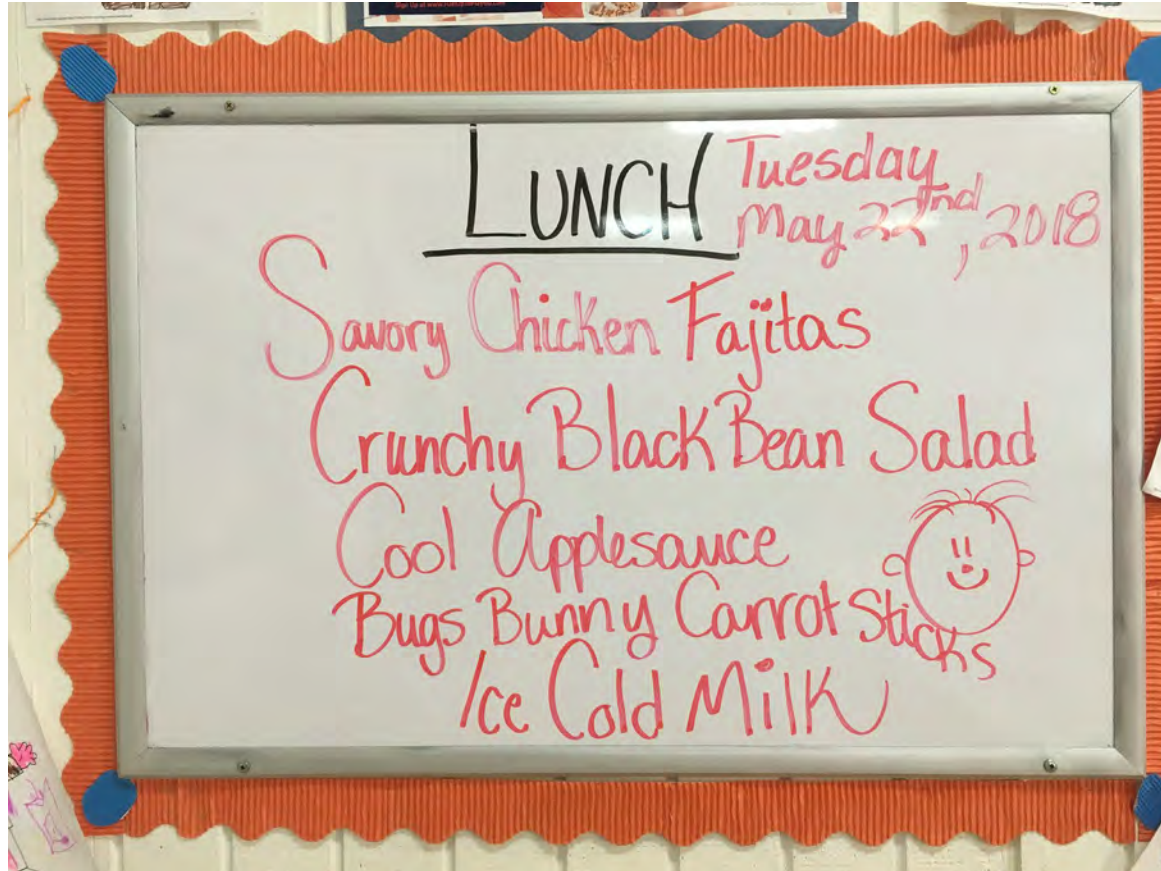 LUNCH Tuesday
May 22nd, 2018
Savory Chicken Fajitas
Crunchy Black Bean Salad
Cool Applesauce
Bugs Bunny Carrot Sticks
Ice Cold Milk